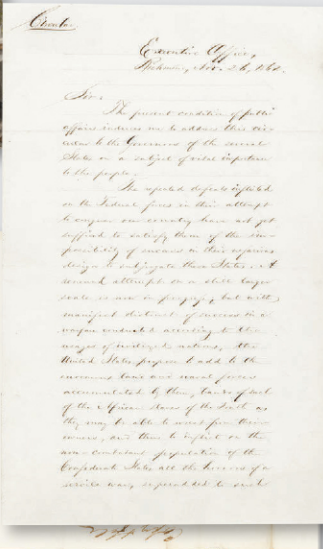 Circular
Executive Office,
Richmond, Nov. 26, 1862.
Sir:
The present condition of public
affairs induces me to address this cir-
cular to the Governors of the several
States on a subject of vital importance
to the people.
The repeated defeats inflicted
on the Federal forces in their attempt
to conquer our country have not yet
sufficed to satisfy them of the im-
possibility of success in their nefarious
design to subjugate these States. A
renewed attempt on a still larger
scale is now in progress, but with
manifest distrust of success in a
warfare conducted according to the
usages of civilized nations, the
United States propose to add to the
enormous land and naval forces
accumulated by them, bands of such
of the African slaves of the South as
they may be able to wrest from their
owners, and thus to inflict on the
non-combatant population of the
Confederate States all the horrors of a
servile war, superadded to such